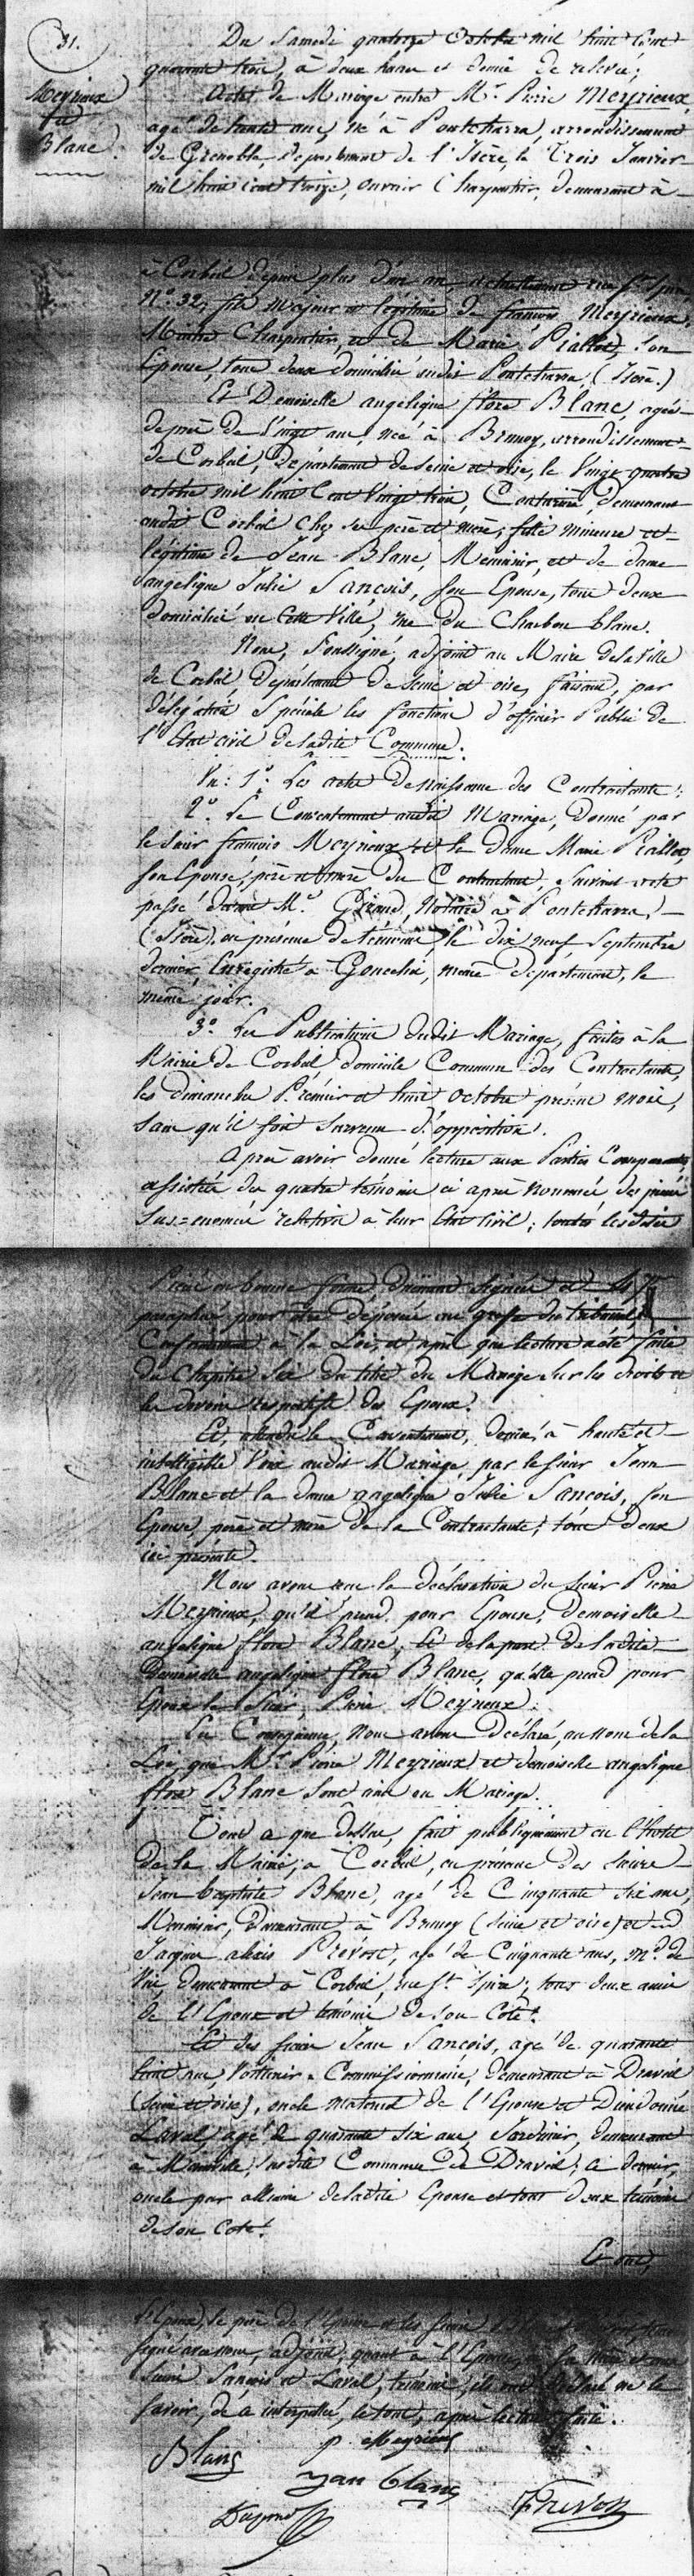 31.
Meyrieux
et
Blanc.
Du Samedi quatorze Octobre mil huit Cent
quarante trois, à deux heures et demie de relevée;
Acte de Mariage entre Mr. Pierre Meyrieux,
agé de trente ans, né à Pontcharra, arrondissement
de Grenoble, département de l'Isère, le Trois Janvier
mil huit cent treize, ouvrier Charpentier, demeurant à
à Corbeil depuis plus d'un an, actuellement rue St. Spire
No. 32, fils majeur et légitime de françois Meyrieux,
Maitre Charpentier, et de Marie Piallot, son
Epouse, tous deux domiciliés audit Pontcharra, (Isère.)
Et Demoiselle angelique flore Blanc, agée
de près de Vingt ans, née à Brunoy, arrondissement
de Corbeil, Département de Seine et oise, le Vingt quatre
octobre mil huit Cent Vingt trois, Couturière, demeurant
audit Corbeil chez ses père et mère; fille mineure et
légitime de Jean Blanc, Menuisier, et de dame
angelique Julie Sançois, son Epouse, tous deux
domiciliés en Cette Ville, rue du Charbon blanc.
Nous, Soussigné, adjoint au Maire de la Ville
de Corbeil Département de Seine et oise, faisant, par
délégation Spéciale les fonctions d'officier Public de
l'Etat civil de ladite Commune.
Vu: 1o. Les actes de naissance des Contractants;
2o. Le Consentement audit Mariage, donné par
le Sieur françois Meyrieux et la dame Marie Piallot,
son Epouse, père et mère du Contractant, suivant acte
passé devant Me. Giraud, Notaire à Pontcharra,
(Isère), en présence de témoins, le dix neuf Septembre
dernier, Enregistré à Goncelin, même département, le
même jour.
3o. Les Publications dudit Mariage, faites à la
Mairie de Corbeil, domicile Commun des Contractants,
les dimanches Premier et huit octobre présent mois,
sans qu'il soit survenu d'opposition.
Après avoir donné lecture aux Parties Comparantes,
assistées des quatre témoins ci après nommés des pièces
sus-énoncées relatives à leur Etat Civil; toutes lesdites
Pièces en bonne forme dûment signées et
paraphées pour être déposées au greffe du tribunal,
Conformément à la Loi, et après que lecture a été faite
du Chapitre Six du titre du Mariage sur les droits et
les devoirs respectifs des Epoux.
Et, attendu le Consentement, donné à haute et
intelligible Voix audit Mariage, par le sieur Jean
Blanc et la dame angelique Julie Sançois, son
Epouse, père et mère de la Contractante, tous deux
ici présents.
Nous avons reçu la déclaration du sieur Pierre
Meyrieux, qu'il prend pour Epouse, Demoiselle
angelique flore Blanc; Et de la part de ladite
Demoiselle angelique flore Blanc, qu'elle prend pour
Epoux le Sieur, Pierre Meyrieux.
En Conséquence, Nous avons déclaré, au nom de la
Loi, que Mr. Pierre Meyrieux et demoiselle angelique
flore Blanc sont unis en Mariage.
Tout ce que dessus, fait publiquement en l'Hotel
de la Mairie, à Corbeil, en présence des sieurs
Jean baptiste Blanc, agé de Cinquante six ans,
Menuisier, demeurant à Brunoy (Seine et oise) et
Jacques alexis Prévost, agé de Cinquante ans, md. de
Vin, demeurant à Corbeil, rue St. Spire; tous deux amis
de l'Epoux et témoins de son Coté.
Et des sieurs Jean Sançois, agé de quarante
huit ans, Voiturier Commissionnaire, demeurant à Draveil
(Seine et oise), oncle maternel de l'Epouse et Dieudonné
Laval, agé de quarante six ans, Jardinier, demeurant
à Mainville, susdite Commune de Draveil, ce dernier,
oncle par alliance de ladite Epouse et tous deux témoins
de son Coté.
Et ont,
L'Epoux, le père de l'Epouse et les sieurs Blanc et Prévost,
signé avec nous, adjoint; quant à l'Epouse, sa Mère et aux
sieurs Sançois et Laval, témoins, ils ont déclaré ne le
savoir, de ce interpellés, le tout, après lecture faite.
Blanc
p. Meyrieux
jean blanc
Prevost